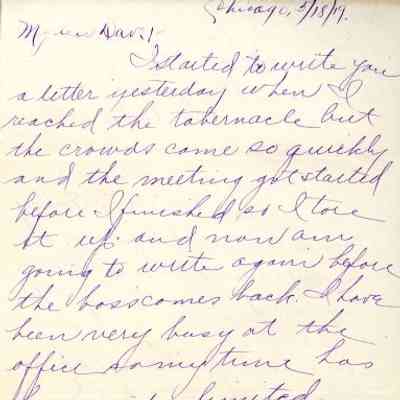 Chicago, 5/18/19.
My own Dave:
I started to write you
a letter yesterday when I
reached the tabernacle but
the crowds came so quickly
and the meeting got started
before I finished so I tore
it up and now am
going to write again before
the boss comes back. I have
been very busy at the
office so my time has
limited